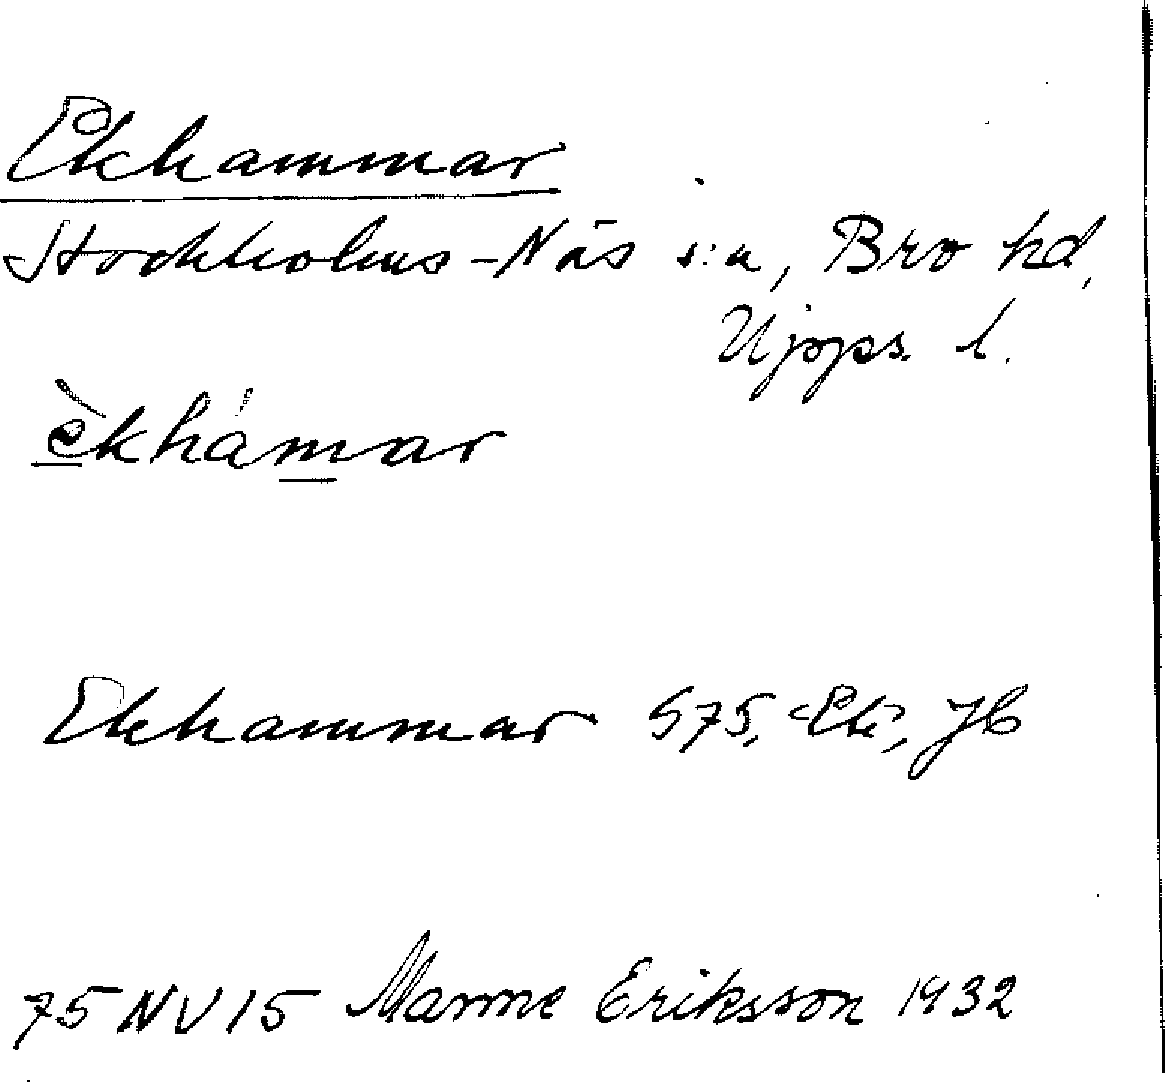 Ekhammar
Stockholms-Näs s:n, Bro hd,
Upps. l.
èkhámar
Ekhammar 575, Ek, JB
75 NV 15 Manne Eriksson 1932